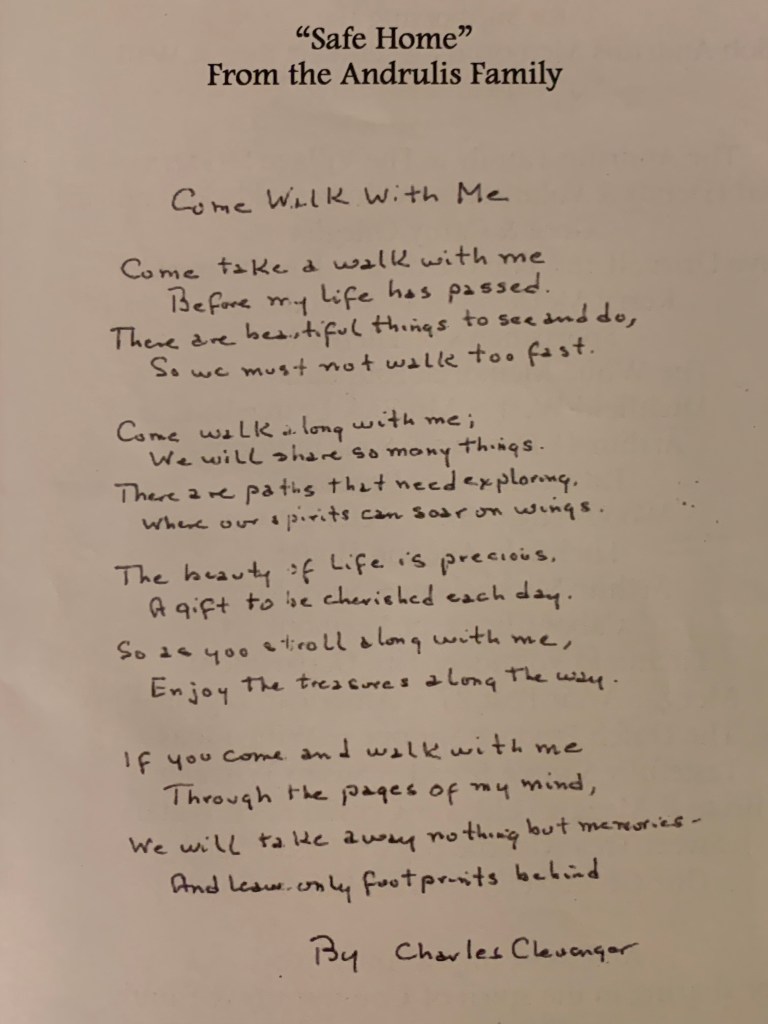 “Safe Home”
From the Andrulis Family
Come Walk With Me
Come take a walk with me
Before my life has passed.
There are beautiful things to see and do,
So we must not walk too fast.
Come walk along with me;
We will share so many things.
There are paths that need exploring,
Where our spirits can soar on wings.
The beauty of life is precious,
A gift to be cherished each day.
So as you stroll along with me,
Enjoy the treasures along the way.
If you come and walk with me
Through the pages of my mind,
We will take away nothing but memories-
And leave only footprints behind
By Charles Clevenger